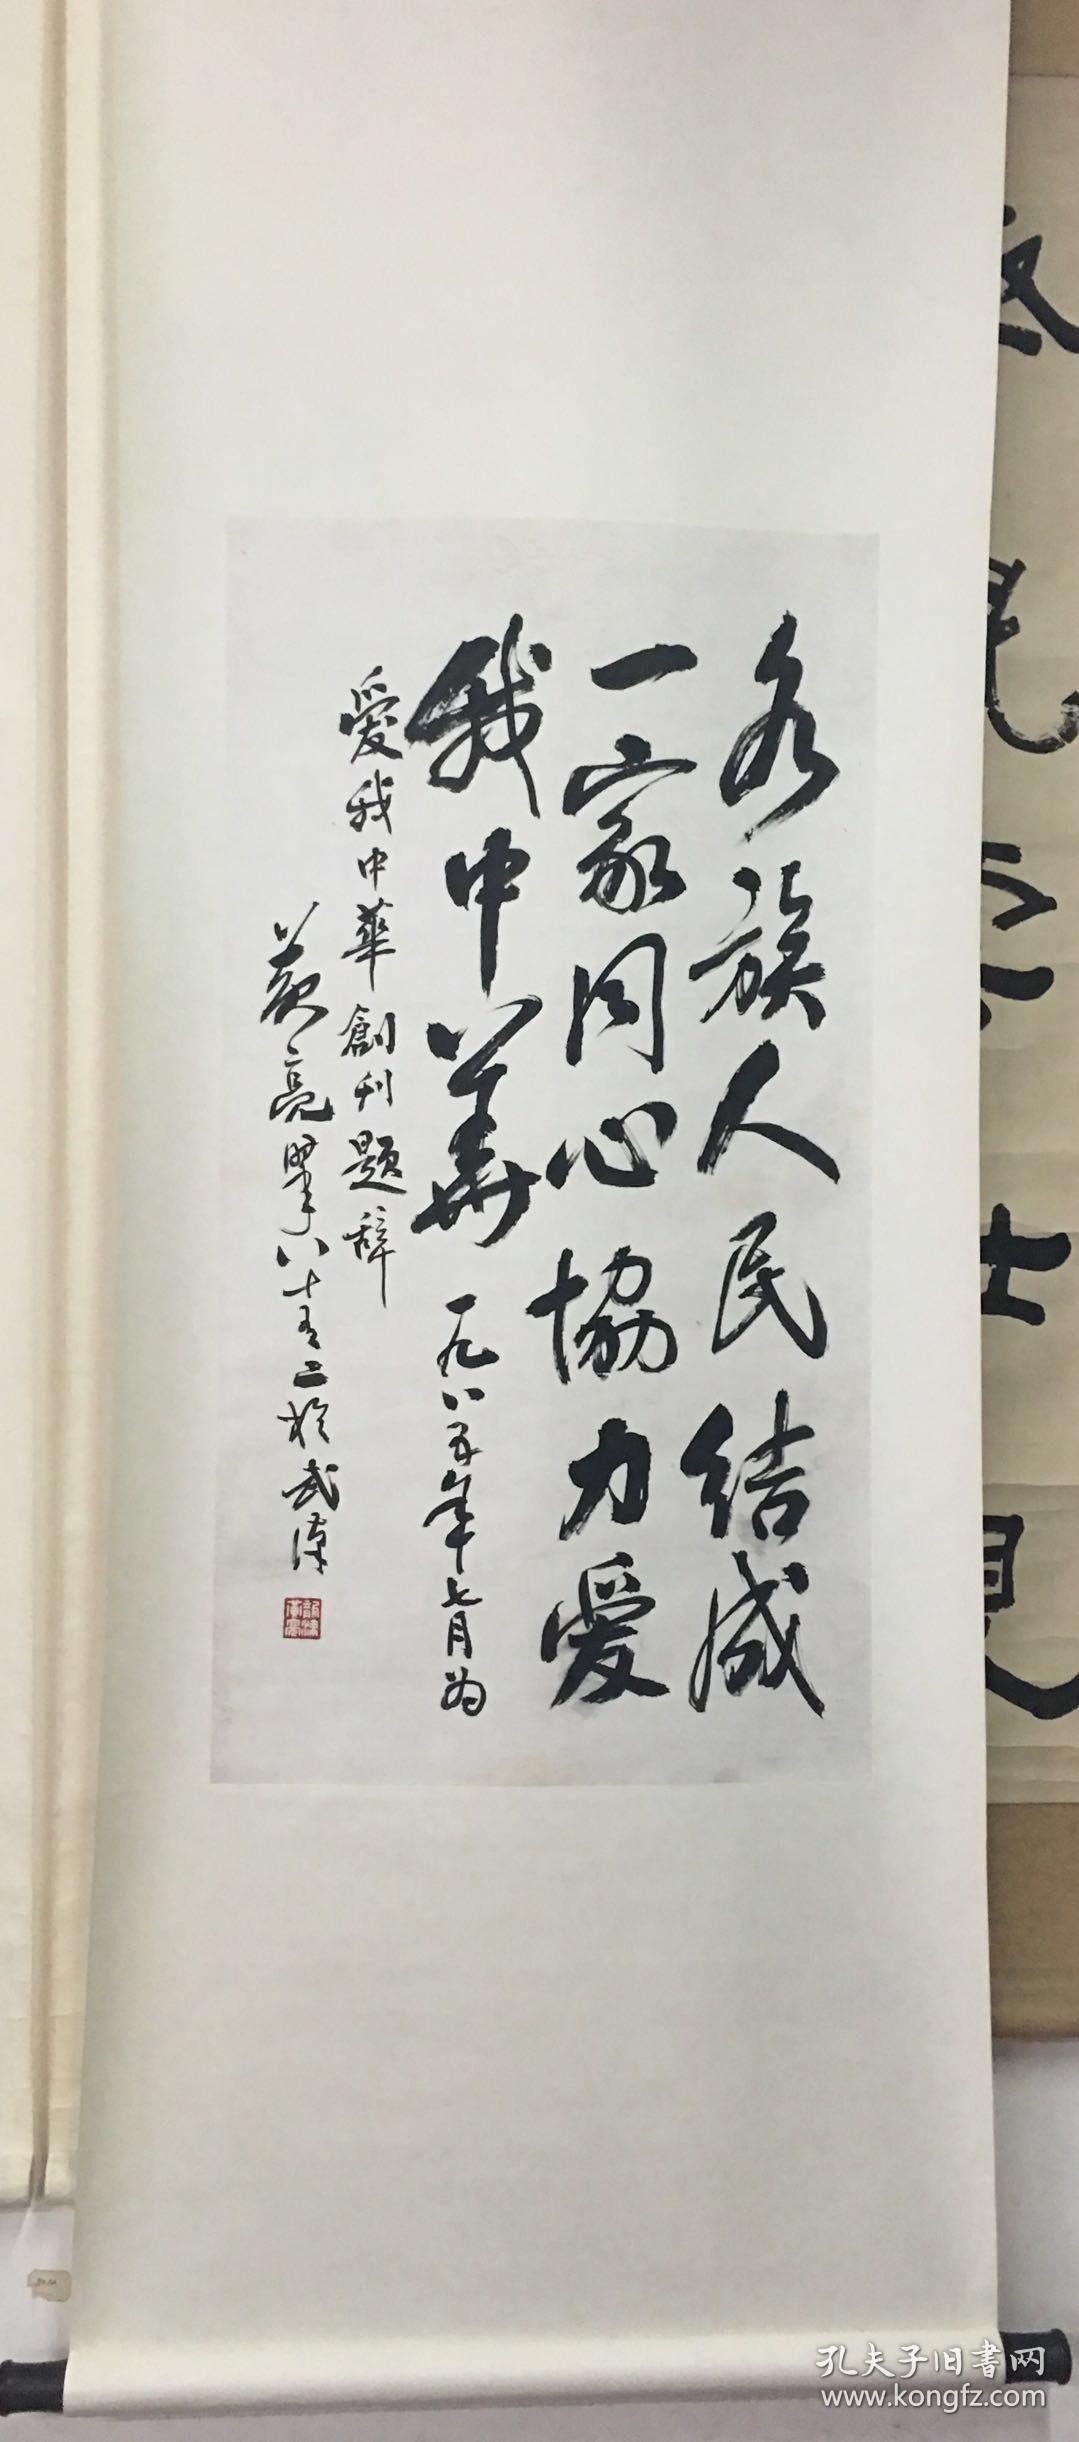 各族人民结成
一家同心協力爱
我中华 一九八五年七月为
爱我中華創刊题辞
黄亮 八十有二於武漢
孔夫子旧書网
www.kongfz.com